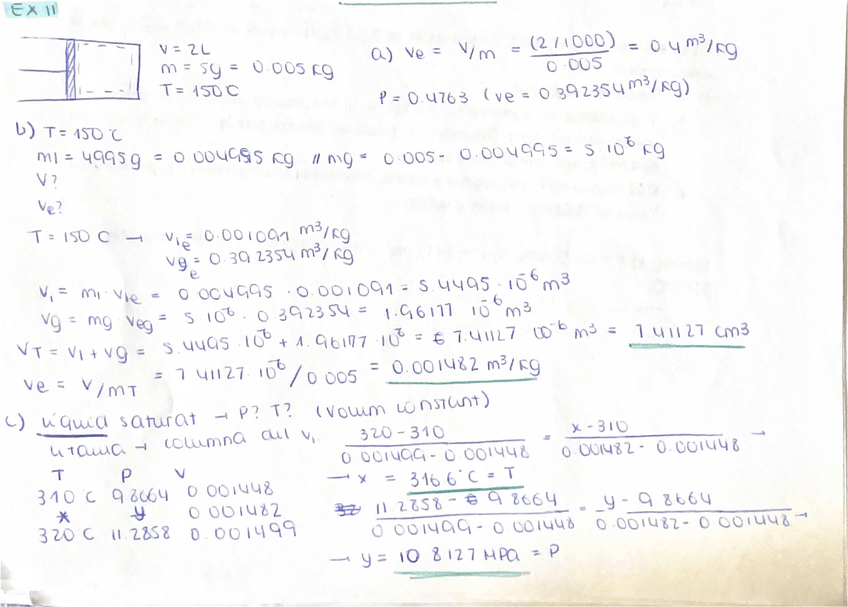 EX 11
V = 2L
m = 5g = 0.005 kg
T = 150 C
a) ve = V/m = (2/1000) / 0.005 = 0.4 m³/kg
P = 0.4763 (ve = 0.392354 m³/kg)
b) T = 150 °C
ml = 4.995g = 0.004995 kg // mg = 0.005 - 0.004995 = 5 10⁻⁶ kg
V?
ve?
T = 150 C → vle = 0.001091 m³/kg
vge = 0.392354 m³/kg
Vl = ml · vle = 0.004995 · 0.001091 = 5.4495 · 10⁻⁶ m³
Vg = mg · veg = 5 10⁻⁶ · 0.392354 = 1.96177 10⁻⁶ m³
VT = Vl + Vg = 5.4495 · 10⁻⁶ + 1.96177 10⁻⁶ = 7.41127 10⁻⁶ m³ = 7.41127 cm3
ve = V/mT = 7.41127 · 10⁻⁶ / 0.005 = 0.001482 m³/kg
c) líquid saturat → P? T? (volum constant)
→ columna del vl
(320 - 310) / (0.001499 - 0.001448) = (x - 310) / (0.001482 - 0.001448) →
T P V
310 C 9.8664 0.001448
x y 0.001482
320 C 11.2858 0.001499
→ x = 316.6 °C = T
(11.2858 - 9.8664) / (0.001499 - 0.001448) = (y - 9.8664) / (0.001482 - 0.001448) →
→ y = 10.8127 MPa = P